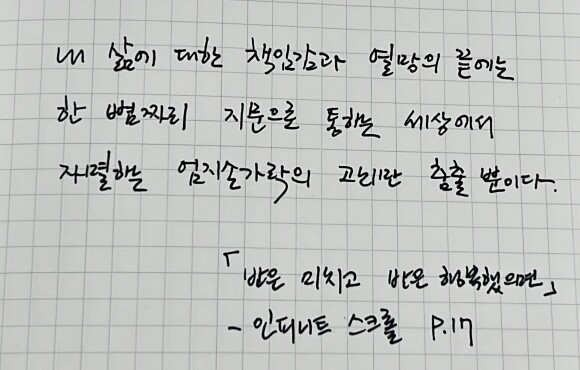 내 삶에 대한 책임감과 열망의 끝에는
한 뼘짜리 지문으로 통하는 세상에서
자결하는 엄지손가락의 고리만 춤출 뿐이다.
「반은 미치고 반은 행복했으면」
- 인피니트 스크롤 P.17